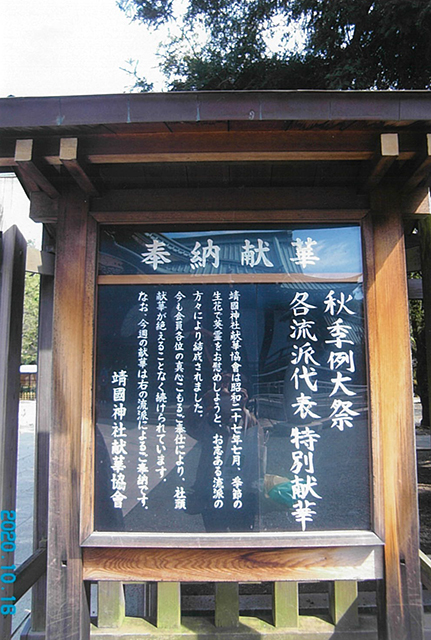 奉納献華
秋季例大祭
各流派代表 特別献華
靖國神社献華協會は昭和二十七年七月、季節の
生花で英霊をお慰めしようと、お志ある流派の
方々により結成されました。
今も会員各位の真心こもるご奉仕により、社頭
献華が絶えることなく続けられています。
なお、今週の献華は右の流派によるご奉納です。
靖國神社献華協會
2020 10 18